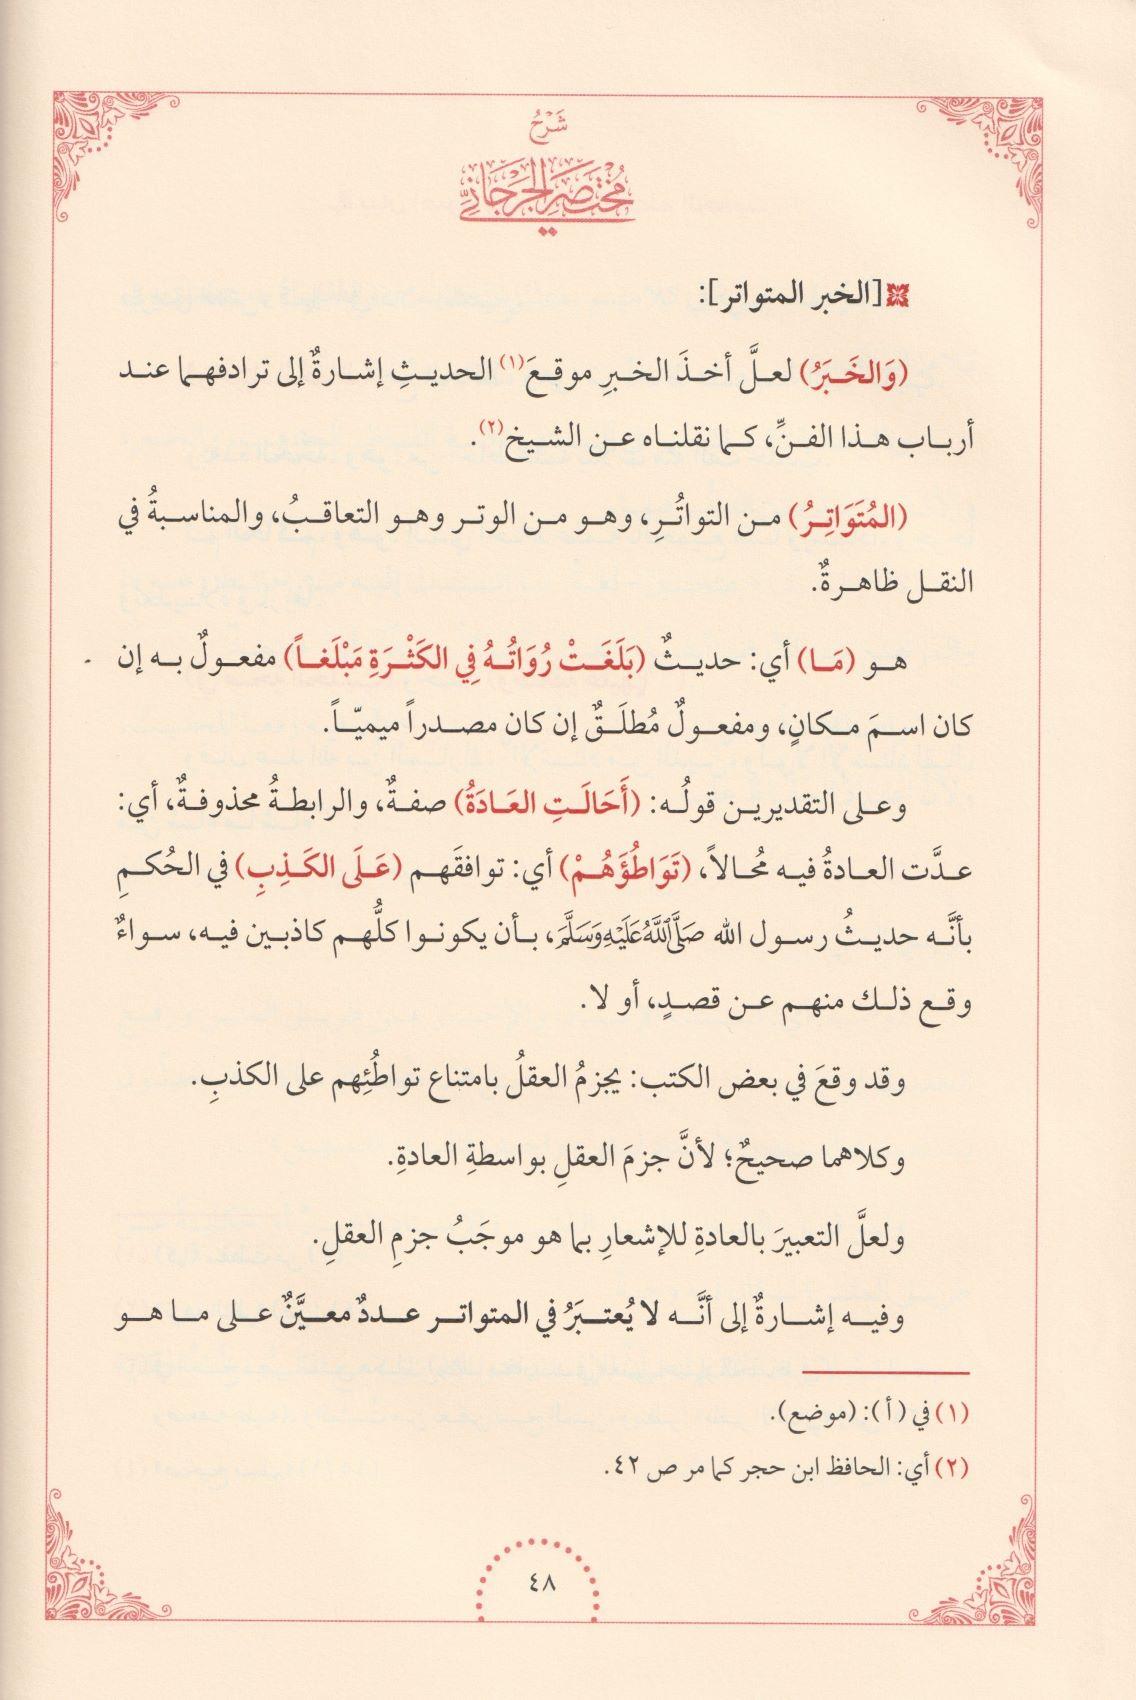 شَرْحُ
مُخْتَصَرِ الجُرْجَانِيِّ
[الخبر المتواتر]:
(وَالخَبَرُ) لعلَّ أخذَ الخبرِ موقعَ(١) الحديثِ إشارةٌ إلى ترادفهما عند
أرباب هذا الفنِّ، كما نقلناه عن الشيخ(٢).
(المُتَوَاتِرُ) من التواتُرِ، وهو من الوتر وهو التعاقبُ، والمناسبةُ في
النقل ظاهرةٌ.
هو (مَا) أي: حديثٌ (بَلَغَتْ رُوَاتُهُ فِي الكَثْرَةِ مَبْلَغاً) مفعولٌ به إن
كان اسمَ مكانٍ، ومفعولٌ مُطلَقٌ إن كان مصدراً ميميّاً.
وعلى التقديرين قولُه: (أَحَالَتِ العَادَةُ) صفةٌ، والرابطةُ محذوفةٌ، أي:
عدَّت العادةُ فيه مُحالاً، (تَوَاطُؤَهُمْ) أي: توافقَهم (عَلَى الكَذِبِ) في الحُكمِ
بأنَّه حديثُ رسول الله صَلَّى اللَّهُ عَلَيْهِ وَسَلَّمَ، بأن يكونوا كلُّهم كاذبين فيه، سواءٌ
وقع ذلك منهم عن قصدٍ، أو لا.
وقد وقعَ في بعض الكتب: يجزمُ العقلُ بامتناع تواطُئِهم على الكذبِ.
وكلاهما صحيحٌ؛ لأنَّ جزمَ العقلِ بواسطةِ العادةِ.
ولعلَّ التعبيرَ بالعادةِ للإشعارِ بما هو موجَبُ جزمِ العقلِ.
وفيه إشارةٌ إلى أنَّه لا يُعتبَرُ في المتواتر عددٌ معيَّنٌ على ما هو
(١) في (أ): (موضع).
(٢) أي: الحافظ ابن حجر كما مر ص ٤٢.
٤٨